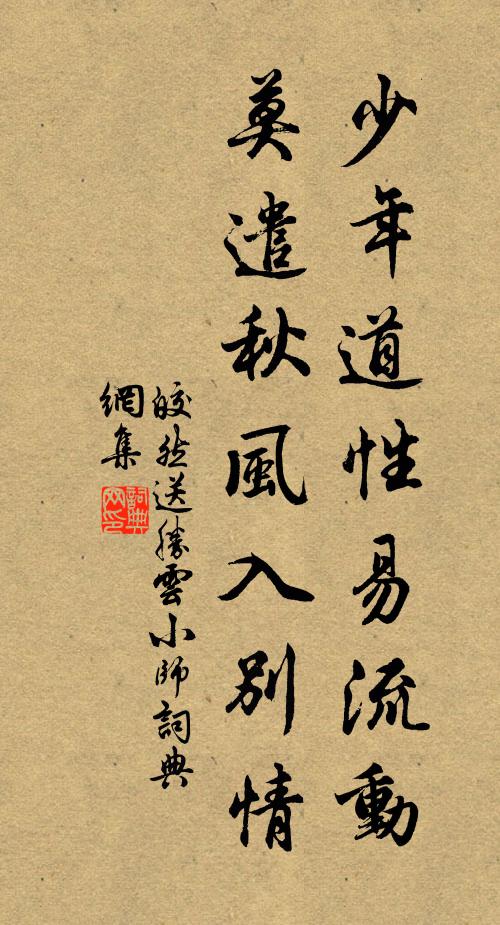 少年道性易流動
莫遣秋風入別情
皎然送勝雲小師詞典
網集
詞典網印